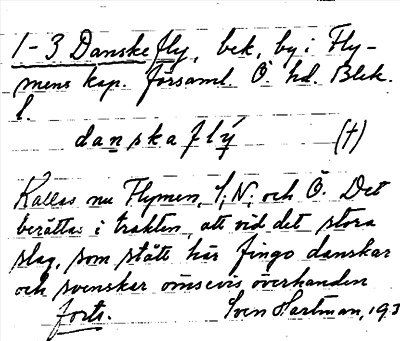 1-3 Danskefly, bek, by i Fly-
mens kap. församl. Ö. hd. Blek.
l.
danskaflý (t)
Kallas nu Flymen, S, N, och Ö. Det
berättas i trakten, att vid det stora
slag, som stått här fingo danskar
och svenskar ömsevis överhanden
forts. Sven Hartman, 193